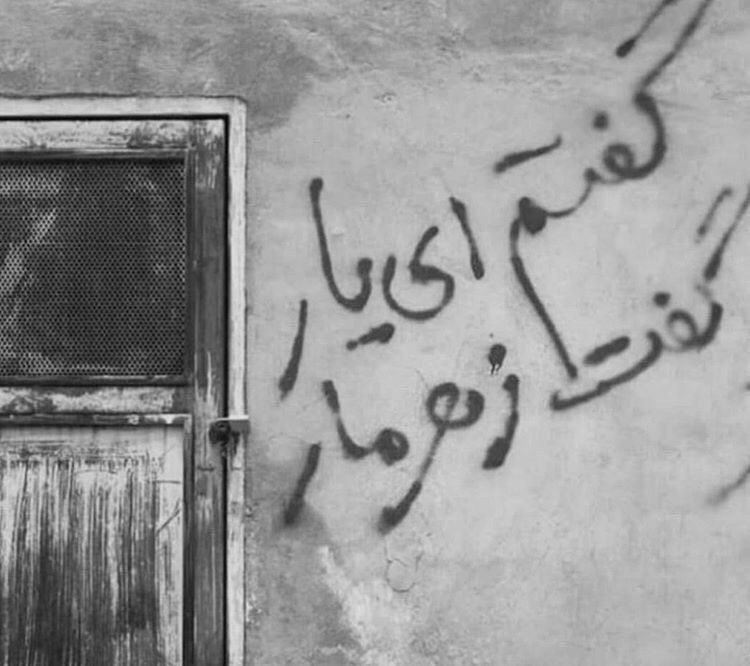 گفتم ای یار
گفت زهرمار